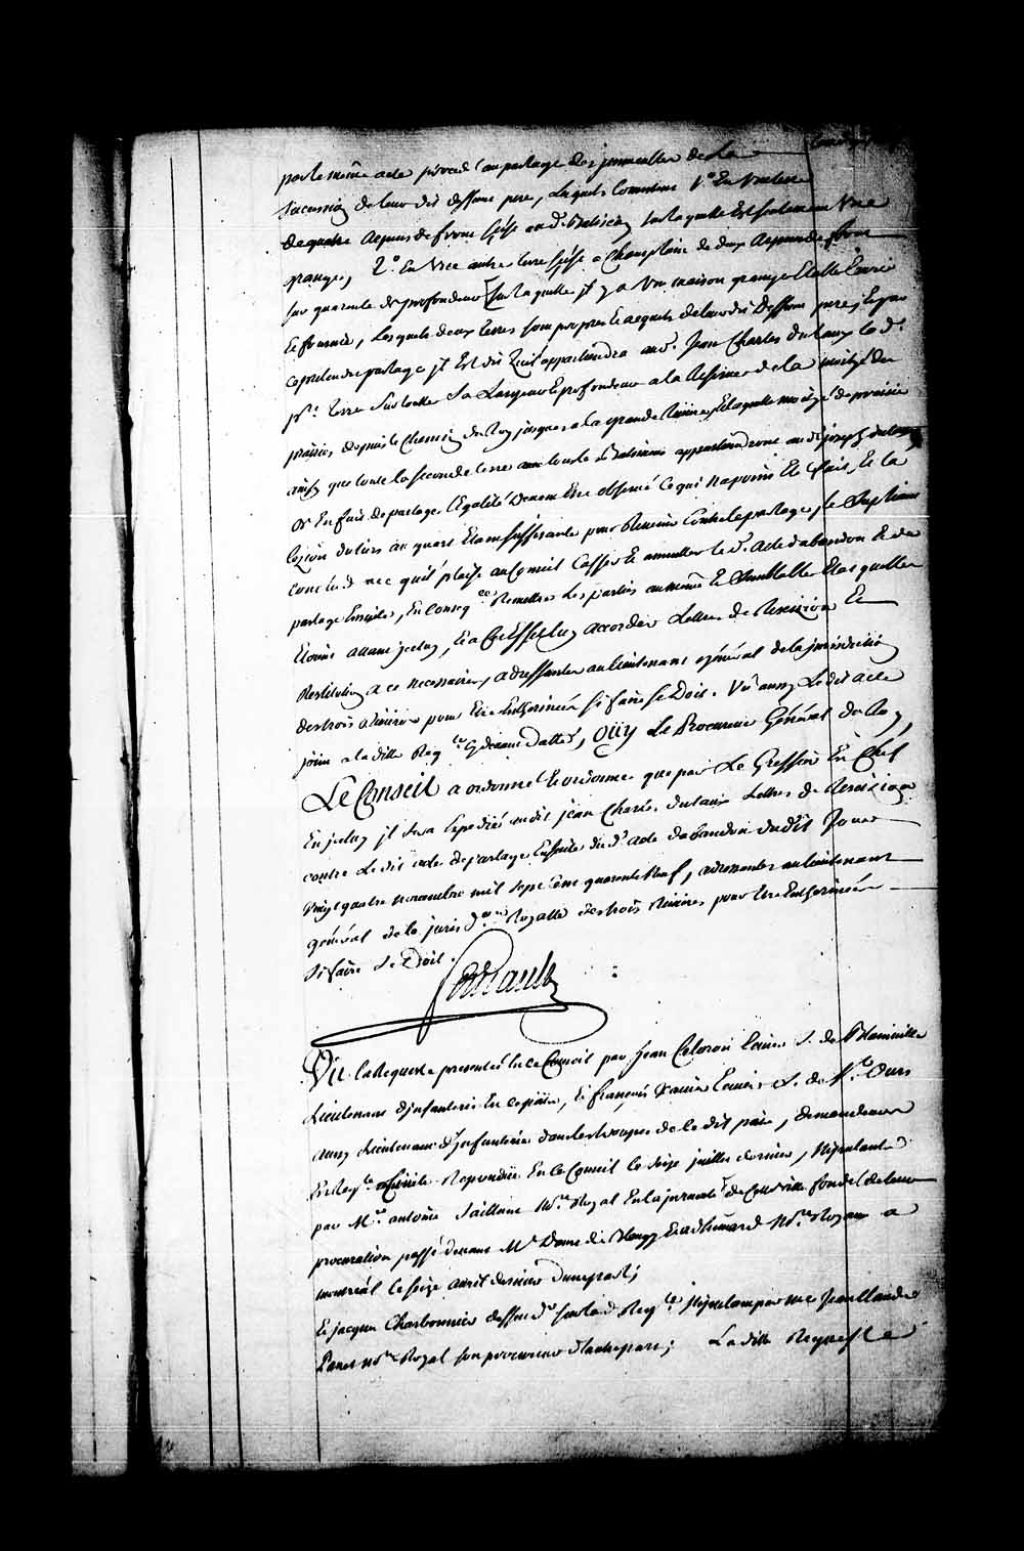 par le même acte procedé au partage des jmmeubles de La
Succession de leur dit deffunt pere, Lesquels Consistent 1.° En Une terre
de quatre arpens de front Scise aud. Batiscan Sur laquelle Est seulement Une
grange, 2.° En Une autre terre Scise a Champlain de deux Arpens de front
sur quarente de profondeur Sur laquelle jl y a Une maison grange Etable Ecurie
Et fournil, Lesquels deux terres sont propres Et acquets de leur dit Deffunt pere, Et par
ce pretendu partage jl Est dit Qu'il appartiendra aud. Jean Charles dutaux la d.e
p.re terre Sur toutte Sa Largeur Et profondeur a la Reserve de la moitié des
prairies depuis le Chemin du Roy jusques a la grande Riviere, Et laquelle moitié de prairie
ainsy que toute la seconde terre appartiendront aud. joseph dutaux
Or En fait de partage L'Egalité Devant Etre observé Ce qui N'a point Eté fait, Et la
lezion du tiers au quart Etant suffisante pour Revenir Contre le partage, le Supliant
conclud a ce qu'il plaise au Conseil Casser Et annuller le d. Acte d'abandon Et de
partage Ensuite, En Conseq.ce Remettre Les parties au même Et Semblable Etat qu'elles
Etoient avant jceluy, Et a Cet Effet luy accorder Lettres de Rescizion Et
Restitution a ce necessaires, adressantes au Lieutenant général de la jurisdiction
des trois Rivieres pour Etre Entherinées si faire se Doit. Vû aussy Ledit acte
joint a la ditte Req.te Cy devant datté, Oüy Le Procureur Général du Roy,
Le Conseil a ordonné Et ordonne que par Le Greffier En Chef
En jceluy jl sera Expedié audit jean Charles dutaux Lettres de Rescizion
contre Ledit acte de partage Ensuite du d. acte d'abandon dudit Jour
Vingt quatre novembre mil sept cent quarente Neuf, adressantes au Lieutenant
général de la jurisd.on Royalle des trois Rivieres pour Etre Entherinées
Si faire Se Doit.
Perrault
Vû la Requeste presentée En ce Conseil par Jean Celoron Ecuier S. de Blainville
Lieutenant d'jnfanterie En ce païs, Et françois Ecuier S. de S.t Ours
aussy Lieutenant d'jnfanterie dans les troupes de Ce dit païs, demandeurs
En Req.te Repondüe En ce Conseil le Seize juillet dernier, Stipulant
par M.re antoine Saillant No.re Royal En la prevosté de Cette Ville fondé de leur
procuration passé devant M.e Danré de Blanzy Et adhemard No.res Royaux a
montréal le seize avril dernier d'une part;
Et jacques Charbonnier deffend.r sur lad. Req.te Stipulant par M.e Jean Claude
Panet no.re Royal son procureur d'autre part; La ditte Requeste